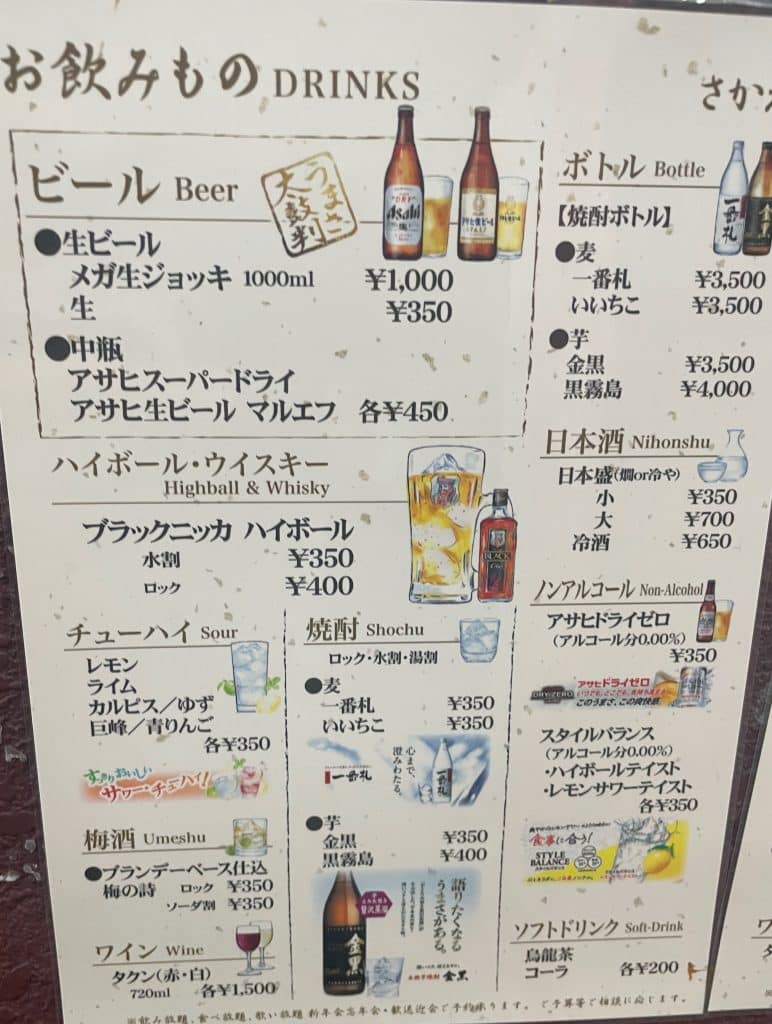 お飲みもの DRINKS
ビール Beer
うまさ
太鼓判
Asahi
●生ビール
メガ生ジョッキ 1000ml ¥1,000
生 ¥350
●中瓶
アサヒスーパードライ
アサヒ生ビール マルエフ 各¥450
ハイボール・ウイスキー
Highball & Whisky
ブラックニッカ ハイボール
水割 ¥350
ロック ¥400
BLACK
チューハイ Sour
レモン
ライム
カルピス／ゆず
巨峰／青りんご
各¥350
すっきりおいしい
サワー・チューハイ!
梅酒 Umeshu
●ブランデーベース仕込
梅の詩 ロック ¥350
ソーダ割 ¥350
ワイン Wine
タクン(赤・白)
720ml 各¥1,500
焼酎 Shochu
ロック・水割・湯割
●麦
一番札 ¥350
いいちこ ¥350
一番札
心まで、
澄みわたる。
●芋
金黒 ¥350
黒霧島 ¥400
語りたくなる
うまさがある。
金黒
さかえ
ボトル Bottle
【焼酎ボトル】
●麦
一番札 ¥3,500
いいちこ ¥3,500
●芋
金黒 ¥3,500
黒霧島 ¥4,000
日本酒 Nihonshu
日本盛(燗or冷や)
小 ¥350
大 ¥700
冷酒 ¥650
ノンアルコール Non-Alcohol
アサヒドライゼロ
(アルコール分0.00%)
¥350
DRY ZERO
アサヒドライゼロ
いつでも、どこでも、気持ち高まる
このうまさ、この爽快感。
スタイルバランス
(アルコール分0.00%)
・ハイボールテイスト
・レモンサワーテイスト
各¥350
食事に合う!
STYLE
BALANCE
ソフトドリンク Soft-Drink
烏龍茶
コーラ 各¥200
※飲み放題、食べ放題、歌い放題 新年会忘年会・歓送迎会ご予約承ります。ご予算等ご相談に応じます。